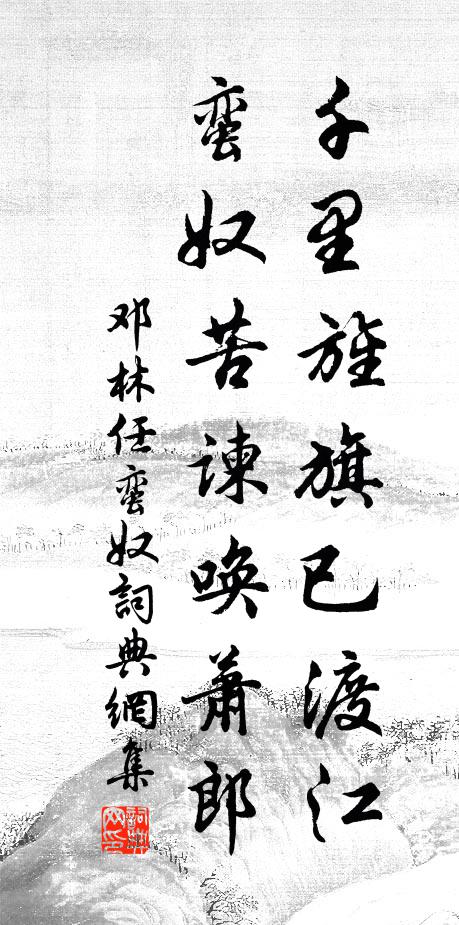 千里旌旗已渡江
蛮奴苦諫喚蕭郎
邓林任蛮奴詞典網集